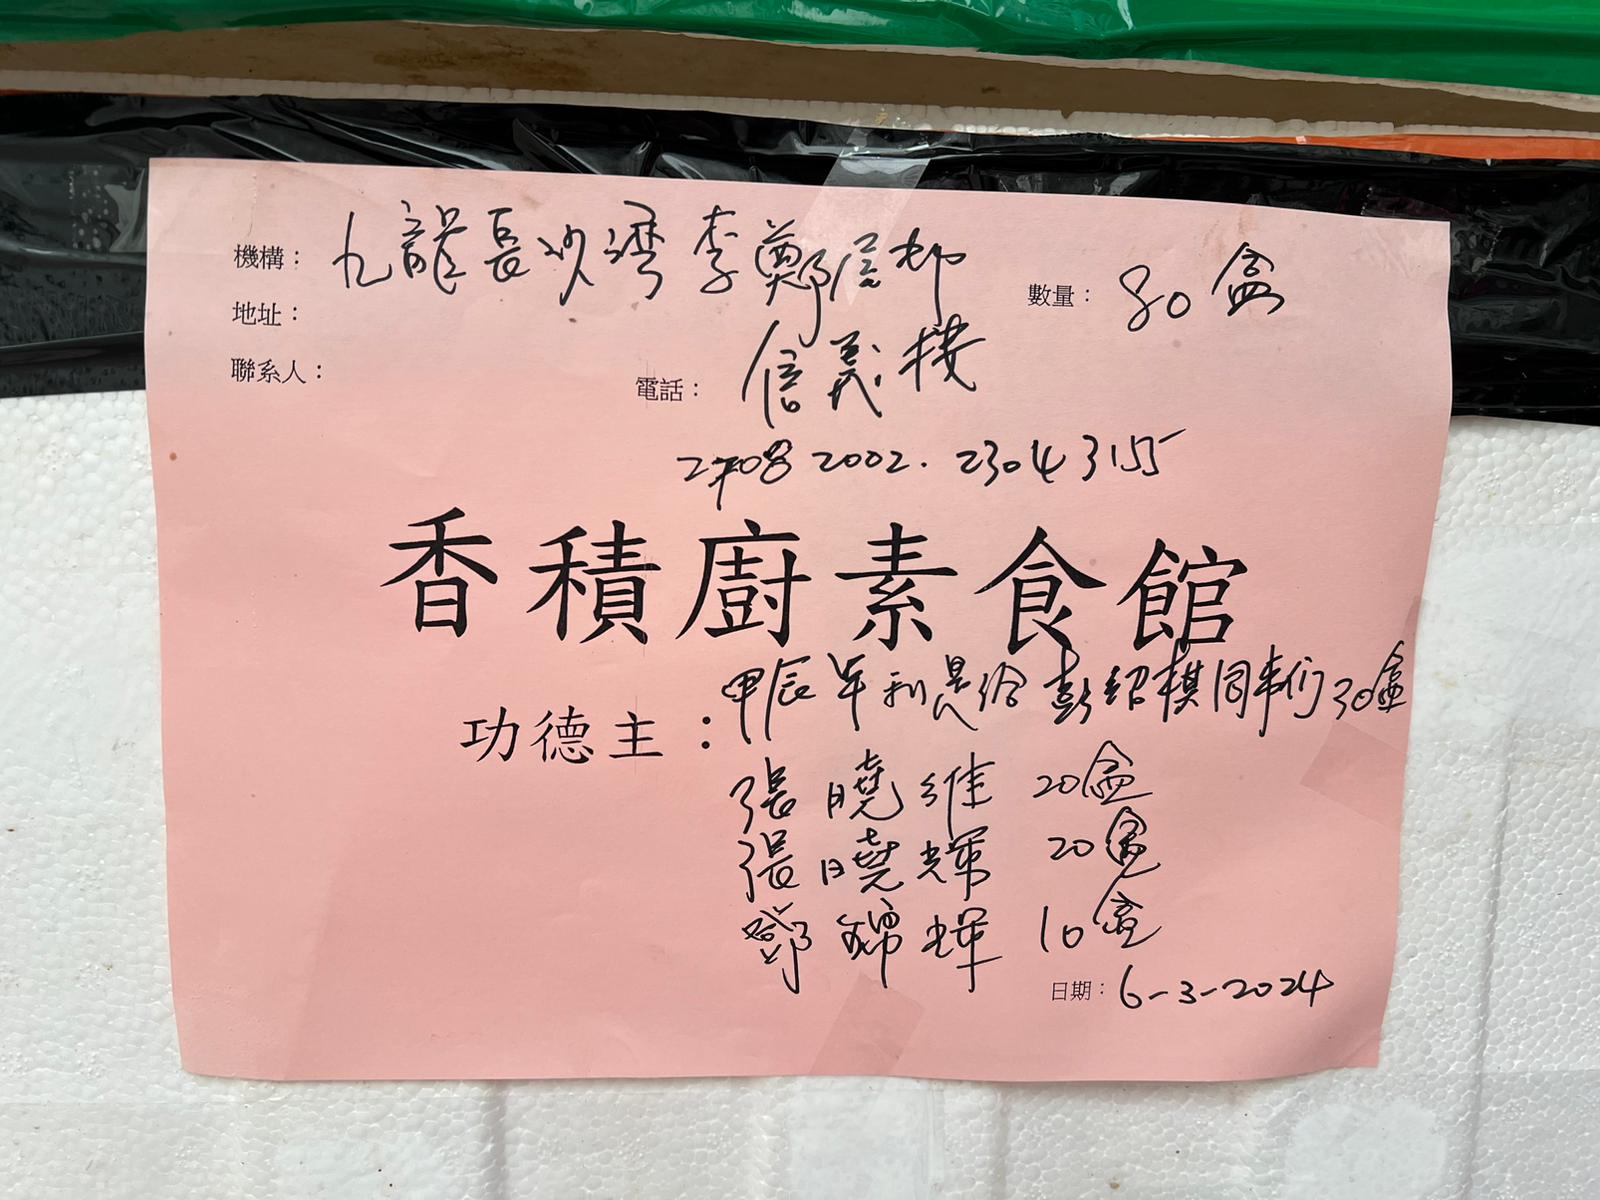 機構： 九龍長沙灣李鄭屋邨
數量： 80盒
地址：
信義樓
聯系人：
電話：
2708 2002. 2304 3155
香積廚素食館
甲辰年利是給彭紹棋同事们30盒
功德主：
張曉維 20盒
張曉輝 20盒
鄧錦輝 10盒
日期： 6-3-2024